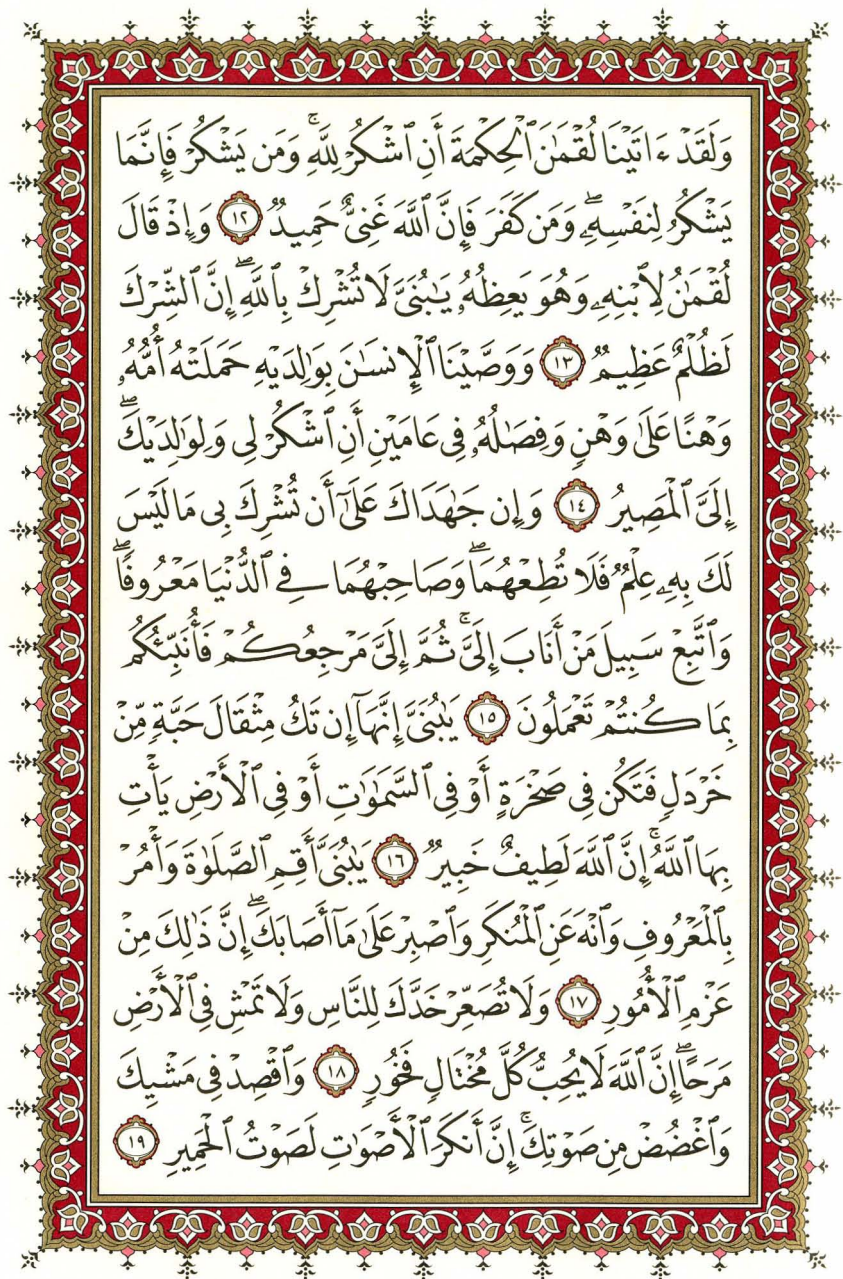 وَلَقَدْ ءَاتَيْنَا لُقْمَٰنَ ٱلْحِكْمَةَ أَنِ ٱشْكُرْ لِلَّهِ ۚ وَمَن يَشْكُرْ فَإِنَّمَا
يَشْكُرُ لِنَفْسِهِۦ ۖ وَمَن كَفَرَ فَإِنَّ ٱللَّهَ غَنِىٌّ حَمِيدٌ ١٢ وَإِذْ قَالَ
لُقْمَٰنُ لِٱبْنِهِۦ وَهُوَ يَعِظُهُۥ يَٰبُنَىَّ لَا تُشْرِكْ بِٱللَّهِ ۖ إِنَّ ٱلشِّرْكَ
لَظُلْمٌ عَظِيمٌ ١٣ وَوَصَّيْنَا ٱلْإِنسَٰنَ بِوَٰلِدَيْهِ حَمَلَتْهُ أُمُّهُۥ
وَهْنًا عَلَىٰ وَهْنٍ وَفِصَٰلُهُۥ فِى عَامَيْنِ أَنِ ٱشْكُرْ لِى وَلِوَٰلِدَيْكَ ۖ
إِلَىَّ ٱلْمَصِيرُ ١٤ وَإِن جَٰهَدَاكَ عَلَىٰٓ أَن تُشْرِكَ بِى مَا لَيْسَ
لَكَ بِهِۦ عِلْمٌ فَلَا تُطِعْهُمَا ۖ وَصَاحِبْهُمَا فِى ٱلدُّنْيَا مَعْرُوفًا ۖ
وَٱتَّبِعْ سَبِيلَ مَنْ أَنَابَ إِلَىَّ ۚ ثُمَّ إِلَىَّ مَرْجِعُكُمْ فَأُنَبِّئُكُم
بِمَا كُنتُمْ تَعْمَلُونَ ١٥ يَٰبُنَىَّ إِنَّهَآ إِن تَكُ مِثْقَالَ حَبَّةٍ مِّنْ
خَرْدَلٍ فَتَكُن فِى صَخْرَةٍ أَوْ فِى ٱلسَّمَٰوَٰتِ أَوْ فِى ٱلْأَرْضِ يَأْتِ
بِهَا ٱللَّهُ ۚ إِنَّ ٱللَّهَ لَطِيفٌ خَبِيرٌ ١٦ يَٰبُنَىَّ أَقِمِ ٱلصَّلَوٰةَ وَأْمُرْ
بِٱلْمَعْرُوفِ وَٱنْهَ عَنِ ٱلْمُنكَرِ وَٱصْبِرْ عَلَىٰ مَآ أَصَابَكَ ۖ إِنَّ ذَٰلِكَ مِنْ
عَزْمِ ٱلْأُمُورِ ١٧ وَلَا تُصَعِّرْ خَدَّكَ لِلنَّاسِ وَلَا تَمْشِ فِى ٱلْأَرْضِ
مَرَحًا ۖ إِنَّ ٱللَّهَ لَا يُحِبُّ كُلَّ مُخْتَالٍ فَخُورٍ ١٨ وَٱقْصِدْ فِى مَشْيِكَ
وَٱغْضُضْ مِن صَوْتِكَ ۚ إِنَّ أَنكَرَ ٱلْأَصْوَٰتِ لَصَوْتُ ٱلْحَمِيرِ ١٩